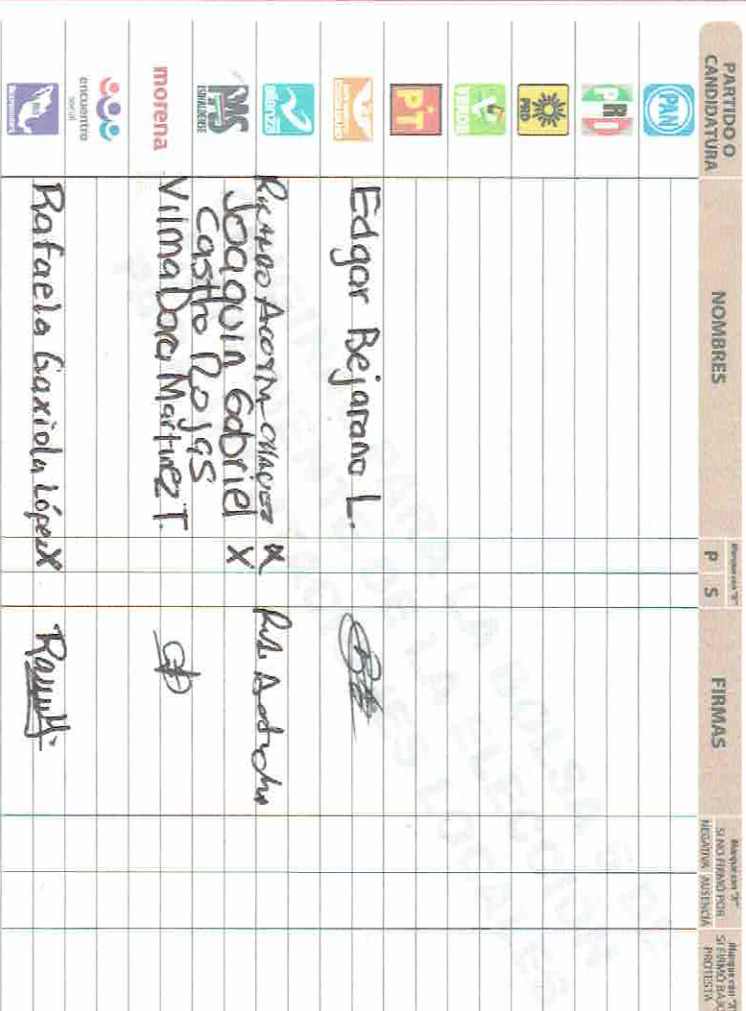 PARTIDO O
CANDIDATURA
NOMBRES
Marque con "X"
P S
FIRMAS
Marque con "X"
SI NO FIRMÓ POR
NEGATIVA AUSENCIA
Marque con "X"
SI FIRMÓ BAJO
PROTESTA
PAN
PRI
PRD
VERDE
PT
Edgar Bejarano L.
alianza
Acosta X
PAS
SINALOENSE
Joaquin Gabriel X
Castro Rojas
morena
Vilma Dora Martinez T.
encuentro
social
Rafaela Gaxiola López X